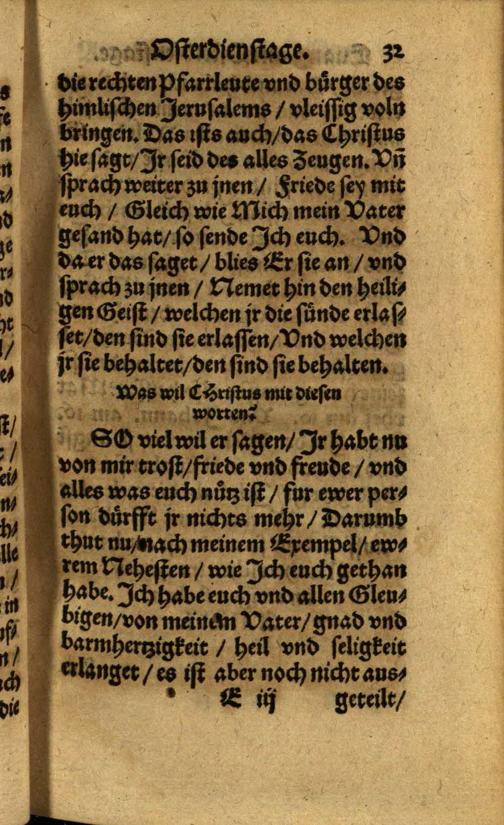 Osterdienstage. 32
die rechten Pfarrleute vnd bürger des
himlischen Jerusalems / vleissig voln
bringen. Das ists auch / das Christus
hie sagt / Jr seid des alles Zeugen. Vñ
sprach weiter zu jnen / Friede sey mit
euch / Gleich wie Mich mein Vater
gesand hat / so sende Ich euch. Vnd
da er das saget / blies Er sie an / vnd
sprach zu jnen / Nemet hin den heili-
gen Geist / welchen jr die sünde erlas-
set / den sind sie erlassen / Vnd welchen
jr sie behaltet / den sind sie behalten.
Was wil CHristus mit diesen
worten?
SO viel wil er sagen / Jr habt nu
von mir trost / friede vnd freude / vnd
alles was euch nütz ist / fur ewer per-
son dürfft jr nichts mehr / Darumb
thut nu / nach meinem Exempel / ew-
rem Nehesten / wie Ich euch gethan
habe. Ich habe euch vnd allen Gleu-
bigen / von meinem Vater / gnad vnd
barmhertzigkeit / heil vnd seligkeit
erlanget / es ist aber noch nicht aus-
E iij geteilt /